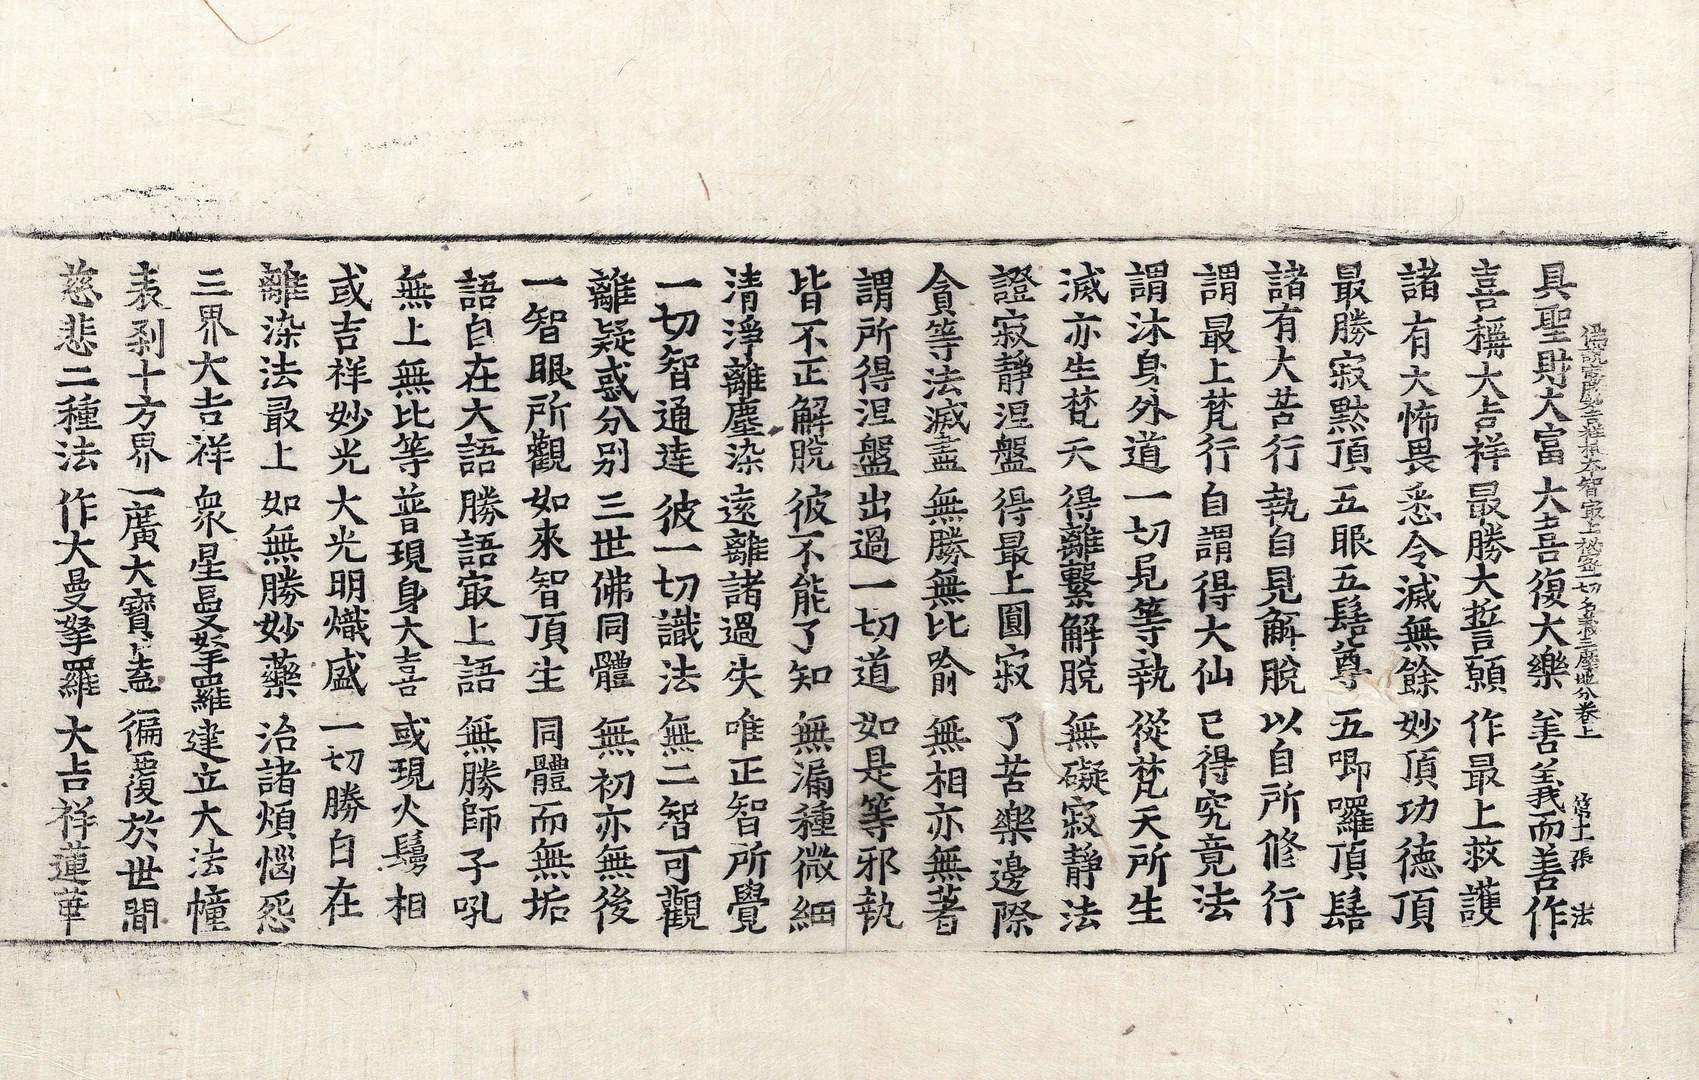 佛說最勝妙吉祥根本智最上祕密一切名義三摩地分卷上 第十張 法
具聖財大富 大喜復大樂 善義而善作
喜稱大吉祥 最勝大誓願 作最上救護
諸有大怖畏 悉令滅無餘 妙頂功德頂
最勝寂默頂 五眼五髻尊 五唧囉頂髻
諸有大苦行 執自見解脫 以自所修行
謂最上梵行 自謂得大仙 已得究竟法
謂沐身外道 一切見等執 從梵天所生
滅亦生梵天 得離繫解脫 無礙寂靜法
證寂靜涅盤 得最上圓寂 了苦樂邊際
貪等法滅盡 無勝無比喻 無相亦無著
謂所得涅盤 出過一切道 如是等邪執
皆不正解脫 彼不能了知 無漏種微細
清淨離塵染 遠離諸過失 唯正智所覺
一切智通達 彼一切識法 無二智可觀
離疑惑分別 三世佛同體 無初亦無後
一智眼所觀 如來智頂生 同體而無垢
語自在大語 勝語㝡上語 無勝師子吼
無上無比等 普現身大喜 或現火鬘相
或吉祥妙光 大光明熾盛 一切勝自在
離染法最上 如無勝妙藥 治諸煩惱怨
三界大吉祥 衆星曼拏羅 建立大法幢
表剎十方界 一廣大寶蓋 徧覆於世間
慈悲二種法 作大曼拏羅 大吉祥蓮華